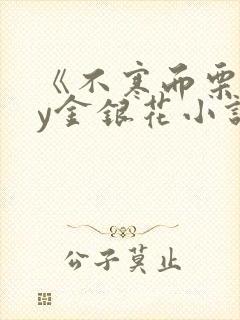 《不寒而栗
y金银花小说
公子莫止